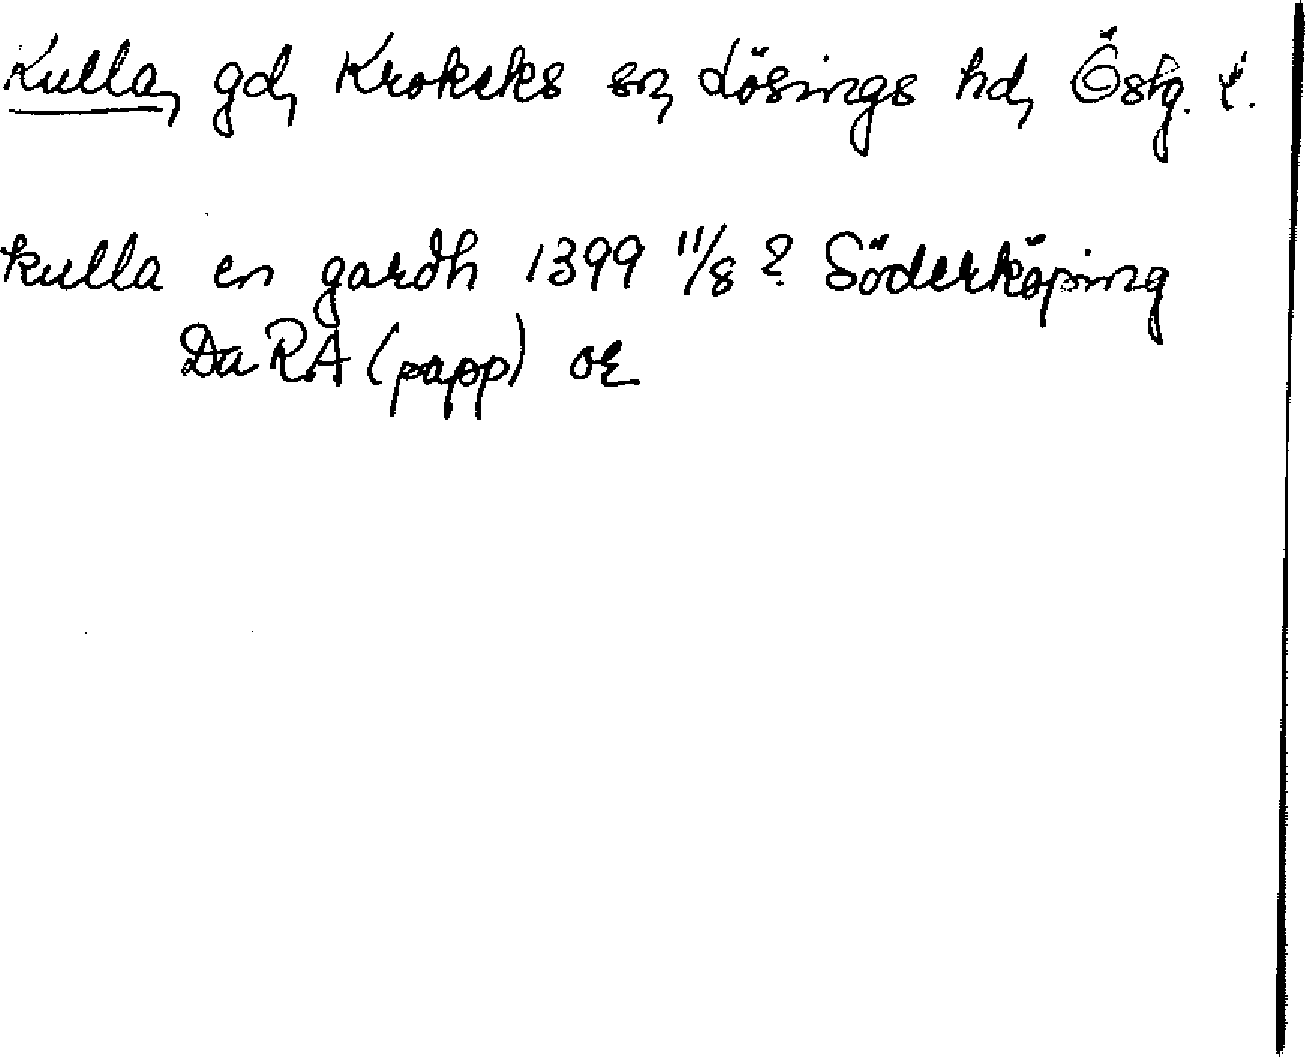 Kulla, gd, Krokeks sn, Lösings hd, Östg. l.
kulla en gardh 1399 11/8 ? Söderköping
DaRA (papp) or